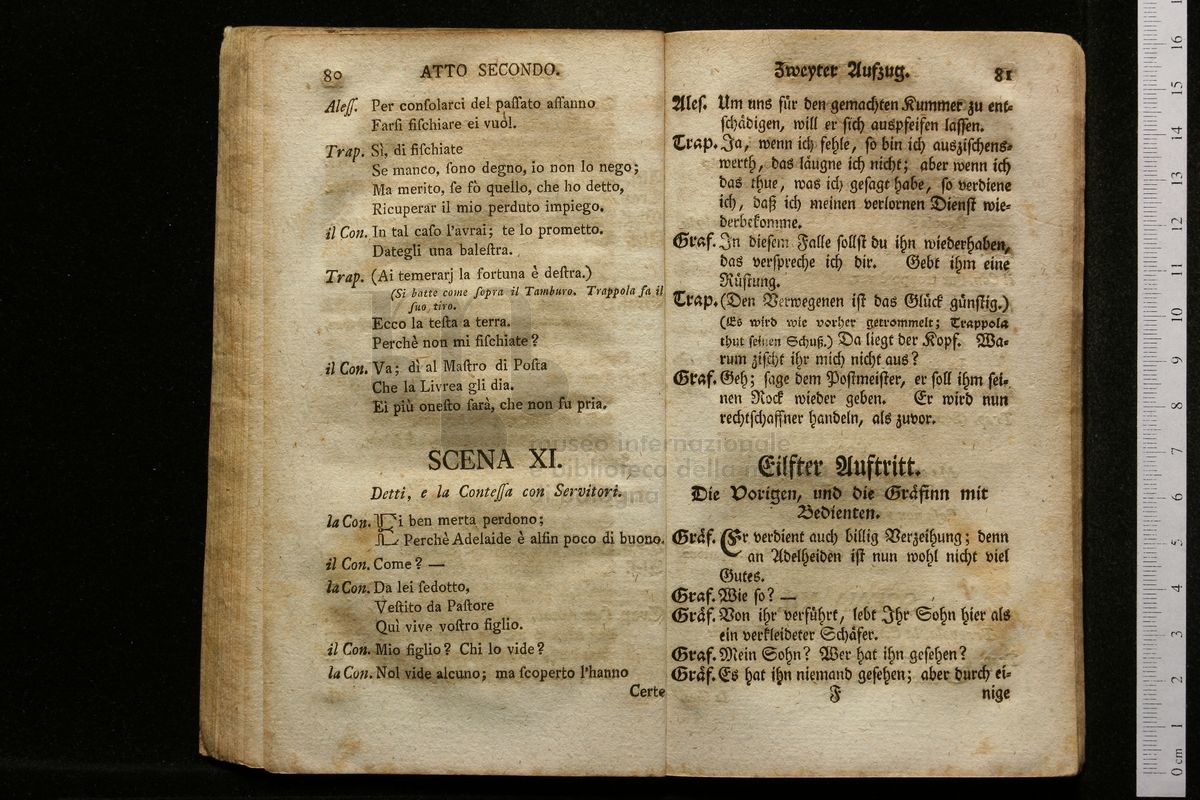 80 ATTO SECONDO.
Aleſſ. Per conſolarci del paſſato aſſanno
Farſi fiſchiare ei vuòl.
Trap. Sì, di fiſchiate
Se manco, ſono degno, io non lo nego;
Ma merito, ſe fò quello, che ho detto,
Ricuperar il mio perduto impiego.
il Con. In tal caſo l'avrai; te lo prometto.
Dategli una baleſtra.
Trap. (Ai temerarj la fortuna è deſtra.)
(Si batte come ſopra il Tamburo. Trappola fa il
ſuo tiro.
Ecco la teſta a terra.
Perchè non mi fiſchiate?
il Con. Va; dì al Maſtro di Poſta
Che la Livrea gli dia.
Ei più oneſto farà, che non fu pria.
SCENA XI.
Detti, e la Conteſſa con Servitori.
la Con. Ei ben merta perdono;
Perchè Adelaide è alfin poco di buono.
il Con. Come? —
la Con. Da lei ſedotto,
Veſtito da Paſtore
Quì vive voſtro figlio.
il Con. Mio figlio? Chi lo vide?
la Con. Nol vide alcuno; ma ſcoperto l'hanno
Certe
Zweyter Aufzug. 81
Aleſ. Um uns für den gemachten Kummer zu ent-
ſchädigen, will er ſich auspfeifen laſſen.
Trap. Ja, wenn ich fehle, ſo bin ich auszischens-
werth, das läugne ich nicht; aber wenn ich
das thue, was ich geſagt habe, ſo verdiene
ich, daß ich meinen verlornen Dienſt wie-
derbekomme.
Graf. In dieſem Falle ſollſt du ihn wiederhaben,
das verſpreche ich dir. Gebt ihm eine
Rüſtung.
Trap. (Den Verwegenen iſt das Glück günſtig.)
(Es wird wie vorher getrommelt; Trappola
thut ſeinen Schuß.) Da liegt der Kopf. Wa-
rum ziſcht ihr mich nicht aus?
Graf. Geh; ſage dem Poſtmeiſter, er ſoll ihm ſei-
nen Rock wieder geben. Er wird nun
rechtſchaffner handeln, als zuvor.
Eilfter Auftritt.
Die Vorigen, und die Gräfinn mit
Bedienten.
Gräf. Er verdient auch billig Verzeihung; denn
an Adelheiden iſt nun wohl nicht viel
Gutes.
Graf. Wie ſo? —
Gräf. Von ihr verführt, lebt Ihr Sohn hier als
ein verkleideter Schäfer.
Graf. Mein Sohn? Wer hat ihn geſehen?
Gräf. Es hat ihn niemand geſehen; aber durch ei-
F nige
museo internazionale
e biblioteca della
bologna
0 cm 1 2 3 4 5 6 7 8 9 10 11 12 13 14 15 16